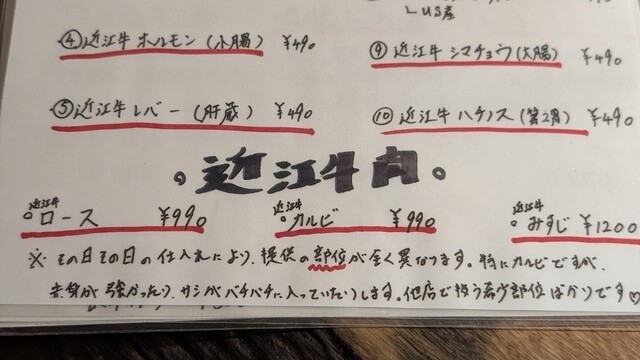 US産
④近江牛ホルモン(小腸) ¥490
⑨近江牛シマチョウ(大腸) ¥490
⑤近江牛レバー(肝蔵) ¥490
⑩近江牛ハチノス(第2胃) ¥490
。近江牛肉。
近江牛 ロース ¥990
近江牛 カルビ ¥990
近江牛 みすじ ¥1200
※その日その日の仕入れにより、提供の部位が全く異なります。特にカルビですが、
赤身が強かったり、サシがバチバチに入っていたりします。他店で扱う希少部位ばかりです♡